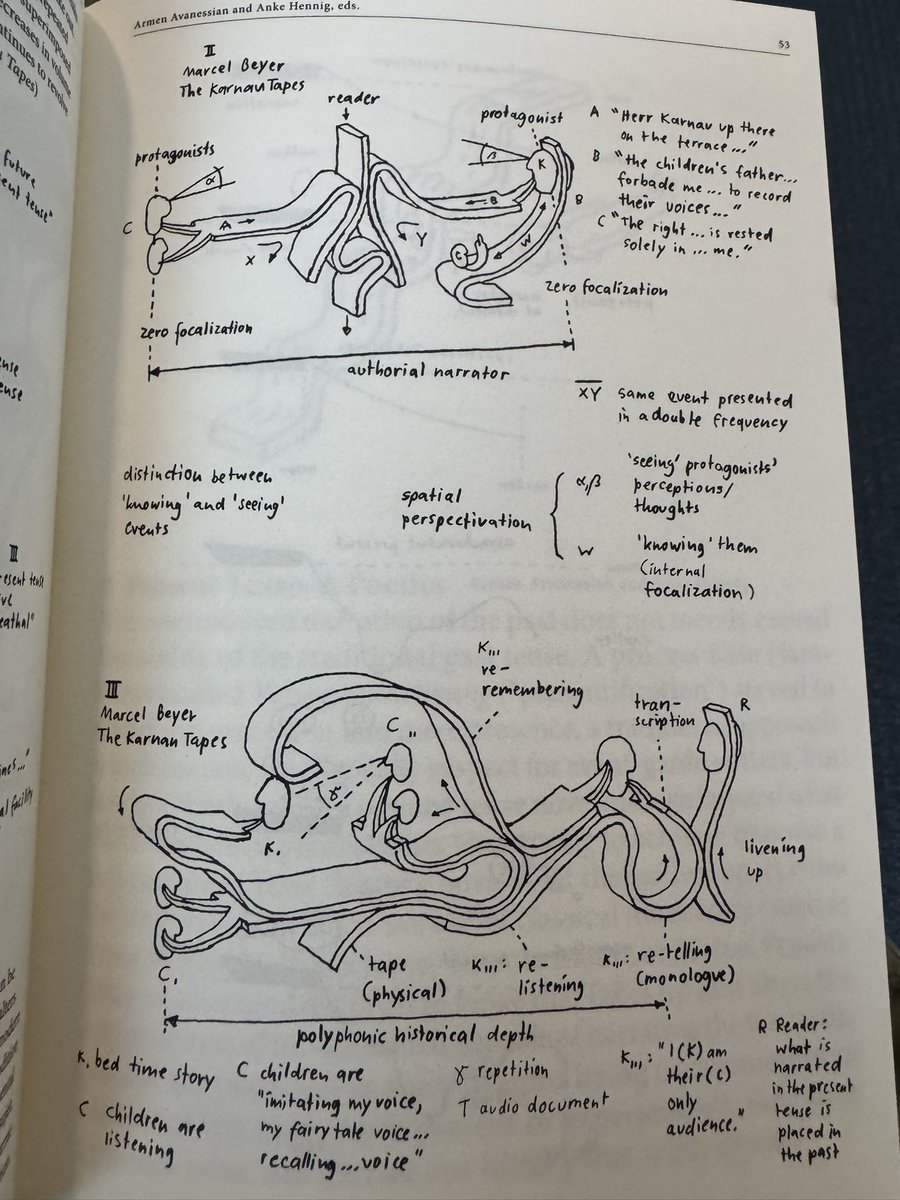 repeated
superimpos
creases in volume
ntinues to revolve
Tapes)
future
sent tense"
ense
ense
III
resent tense
ive
eathal"
ines..."
al facility
Armen Avanessian and Anke Hennig, eds.
53
II
Marcel Beyer
The Karnau Tapes
reader
protagonists
protagonist
α
β
K
C
A
B
B
X
Y
W
C
A "Herr Karnau up there
on the terrace..."
B "the children's father...
forbade me... to record
their voices..."
C "The right... is rested
solely in... me."
zero focalization
zero focalization
authorial narrator
XY same event presented
in a double frequency
distinction between
'knowing' and 'seeing'
events
spatial
perspectivation
α,β 'seeing' protagonists'
perceptions/
thoughts
W 'knowing' them
(internal
focalization)
III
Marcel Beyer
The Karnau Tapes
K,,,
re-
remembering
C,,
tran-
scription
R
K,
γ
livening
up
C,
tape
(physical)
K,,,: re-
listening
K,,,: re-telling
(monologue)
polyphonic historical depth
K, bed time story
C children are
listening
C children are
"imitating my voice,
my fairytale voice...
recalling...voice"
γ repetition
T audio document
K,,,: "I(K) am
their(c)
only
audience."
R Reader:
what is
narrated
in the present
tense is
placed in
the past